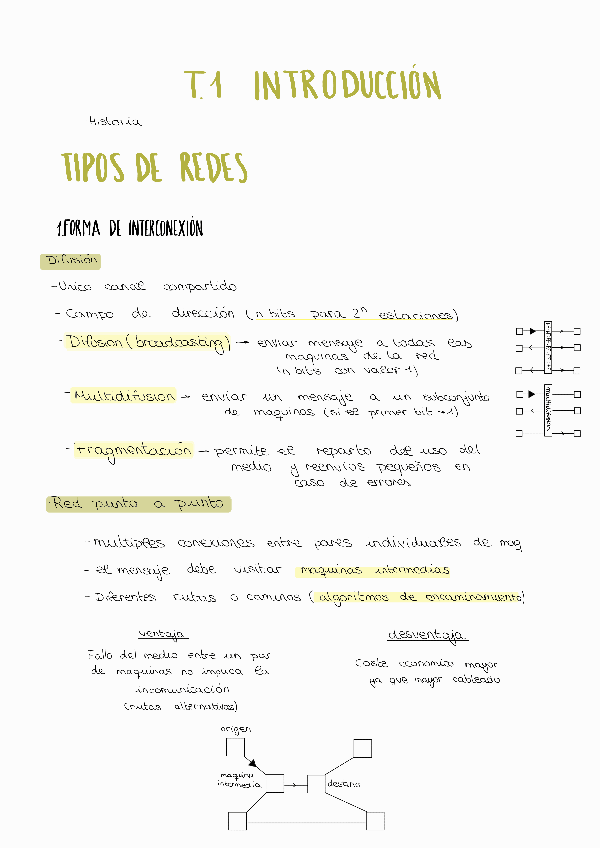 T.1 INTRODUCCIÓN
Historia
TIPOS DE REDES
1.FORMA DE INTERCONEXIÓN
Difusión
-Unico canal compartido
- Campo de dirección (n bits para 2ⁿ estaciones)
- Difusion (broadcasting) → enviar mensaje a todas las
maquinas de la red
(n bits con valor 1)
- Multidifusion → enviar un mensaje a un subconjunto
de maquinas (si el primer bit →1)
- Fragmentación → permite el reparto del uso del
medio y reenvios pequeños en
caso de errores
·Red punto a punto
·multiples conexiones entre pares individuales de maq
- el mensaje debe visitar maquinas intermedias
- Diferentes rutas o caminos (algoritmos de encaminamiento)
ventaja
Fallo del medio entre un par
de maquinas no implica la
incomunicación
(rutas alternativas)
desventaja
Coste economico mayor
ya que mayor cableado
origen
maquina
intermedia
destino